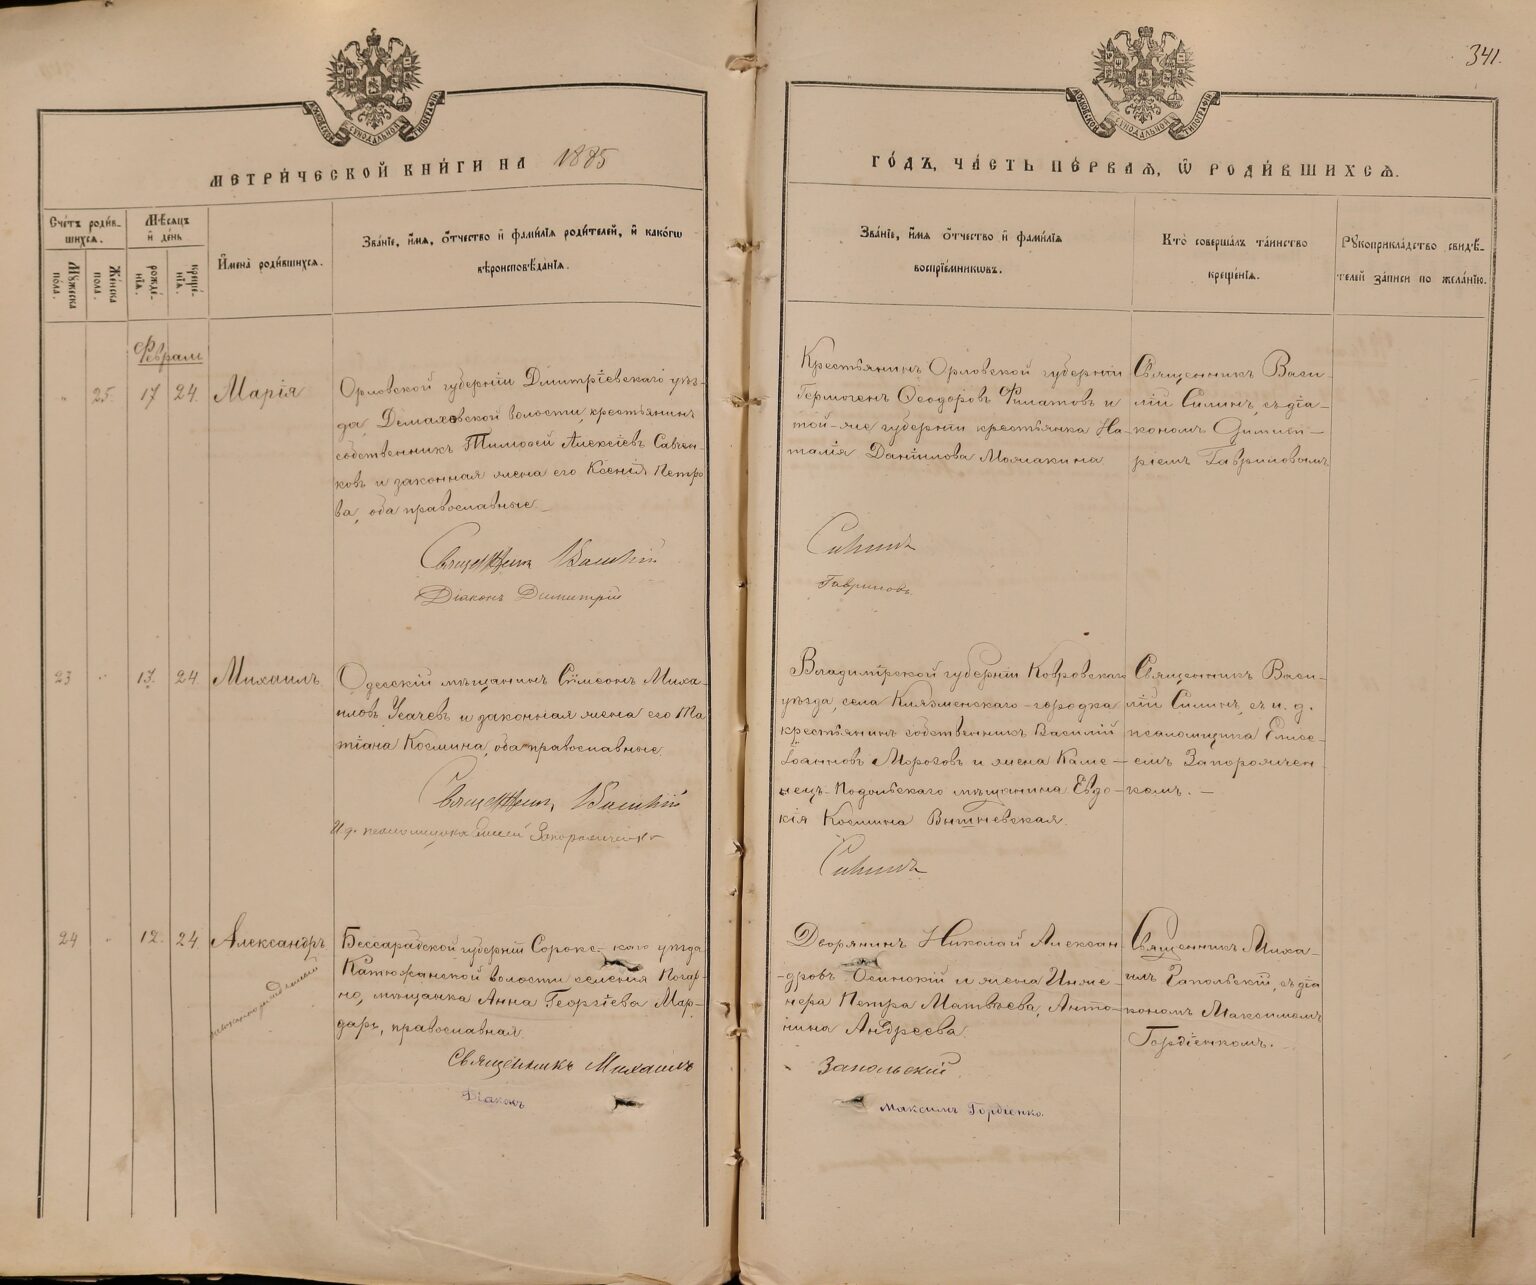 341.
МОСКОВСКОЙ СѴНОДАЛЬНОЙ ТИПОГРАФІИ
МОСКОВСКОЙ СѴНОДАЛЬНОЙ ТИПОГРАФІИ
МЕТРИ́ЧЕСКОЙ КНИ́ГИ НА 1885
ГО́ДЪ, ЧА́СТЬ ПЕ́РВАѦ, Ѿ РОДИ́ВШИХСѦ.
Сче́тъ роди́в-
шихсѧ.
Мѣ́сѧцъ
и҆ де́нь
Му́жеска по́ла.
Же́нска пола.
рожде́-
нїѧ.
креще́-
нїѧ.
И҆мена̀ роди́вшихсѧ.
Зва́нїе, и҆́мѧ, ѻ҆́тчество и҆ фами́лїѧ роди́телей, и҆ како́гѡ
вѣроисповѣ́данїѧ.
Зва́нїе, и҆́мѧ ѻ҆́тчество и҆ фами́лїѧ
воспрїе́мникѡвъ.
Кто̀ соверша́лъ та́инство
креще́нїѧ.
Рꙋкоприкла́дство свидѣ́-
телей за́писи по жела́нїю.
Февраль
" 25. 17 24. Марія
Орловской губерніи Дмитріевскаго уѣз-
да, Демаховской волости, крестьянинъ
собственникъ Тимофей Алексіевъ Савчен-
ковъ и законная жена его Ксенія Петро
ва, оба православные.
Священникъ Василій
Діаконъ Димитрій
Крестьянинъ Орловской губерніи
Гермогенъ Ѳеодоровъ Филатовъ и
той-же губерніи крестьянка На-
талія Даніилова Можакина
Силинъ
Гавриловъ.
Священникъ Васи-
лій Силинъ, съ діа-
кономъ Димит-
ріемъ Гавриловымъ
23 " 13. 24. Михаилъ
Одесскій мѣщанинъ Сѵмеонъ Миха-
иловъ Усачевъ и законная жена его Та
тіана Космина, оба православные.
Священникъ, Василій
И. д. псаломщика Елисей Запорожченко
Владимірской губерніи Ковровскаго
уѣзда, села Клязменскаго-городка
крестьянинъ собственникъ Василій
Іоанновъ Морозовъ и жена Каме-
нецъ-Подольскаго мѣщанина Евдо-
кія Космина Вышневская.
Силинъ
Священникъ Васи-
лій Силинъ, съ и. д.
псаломщика Елисе-
емъ Запорожчен-
комъ. -
24 " 12. 24 Александръ
незаконнорожденный
Бессарабской губерніи Сорокс-каго уѣзда
Катюжанской волости селенія Погар-
но, мѣщанка Анна Георгіева Мар-
дарь, православная.
Священникъ Михаилъ
Діаконъ
Дворянинъ Николай Алексан
-дровъ Осинскій и жена Инже-
нера Петра Матвѣева, Анто-
нина Андреева.
Запольскій.
Максимъ Гордіенко.
Священникъ Миха-
илъ Запольскій, съ діа
кономъ Максимомъ
Гордіенкомъ.